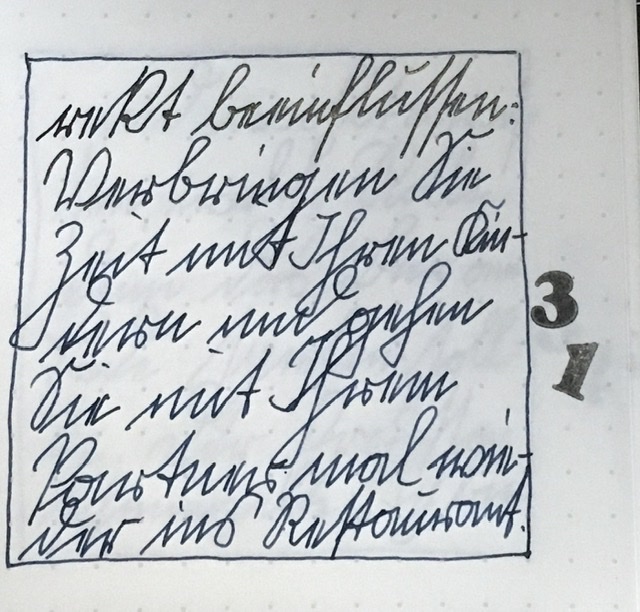 rekt beeinflussen:
Verbringen Sie
Zeit mit Ihren Kin-
dern und gehen
Sie mit Ihrem
Partner mal wie-
der ins Restaurant.
3
1